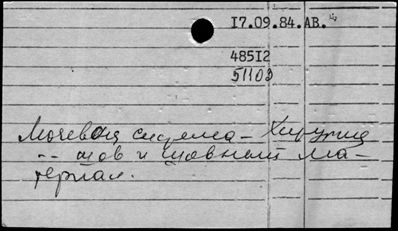 17.09.84.АВ.
48512
51103
Мочевая система – Хирургия
-- шов и шовный ма-
териал.